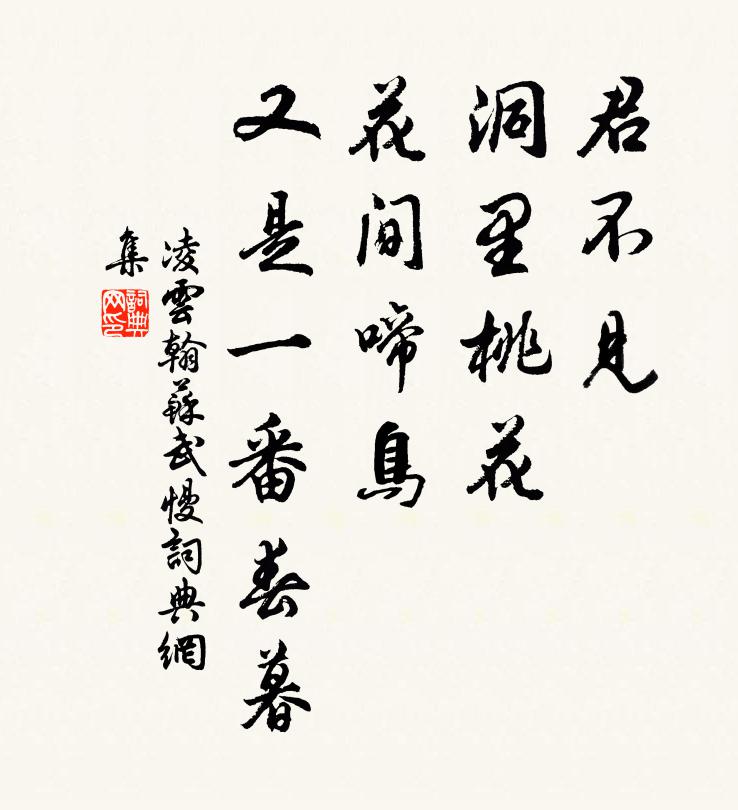 君不见
洞里桃花
花间啼鳥
又是一番春暮
凌雲翰蘇武慢詞典網
集
詞典
网印